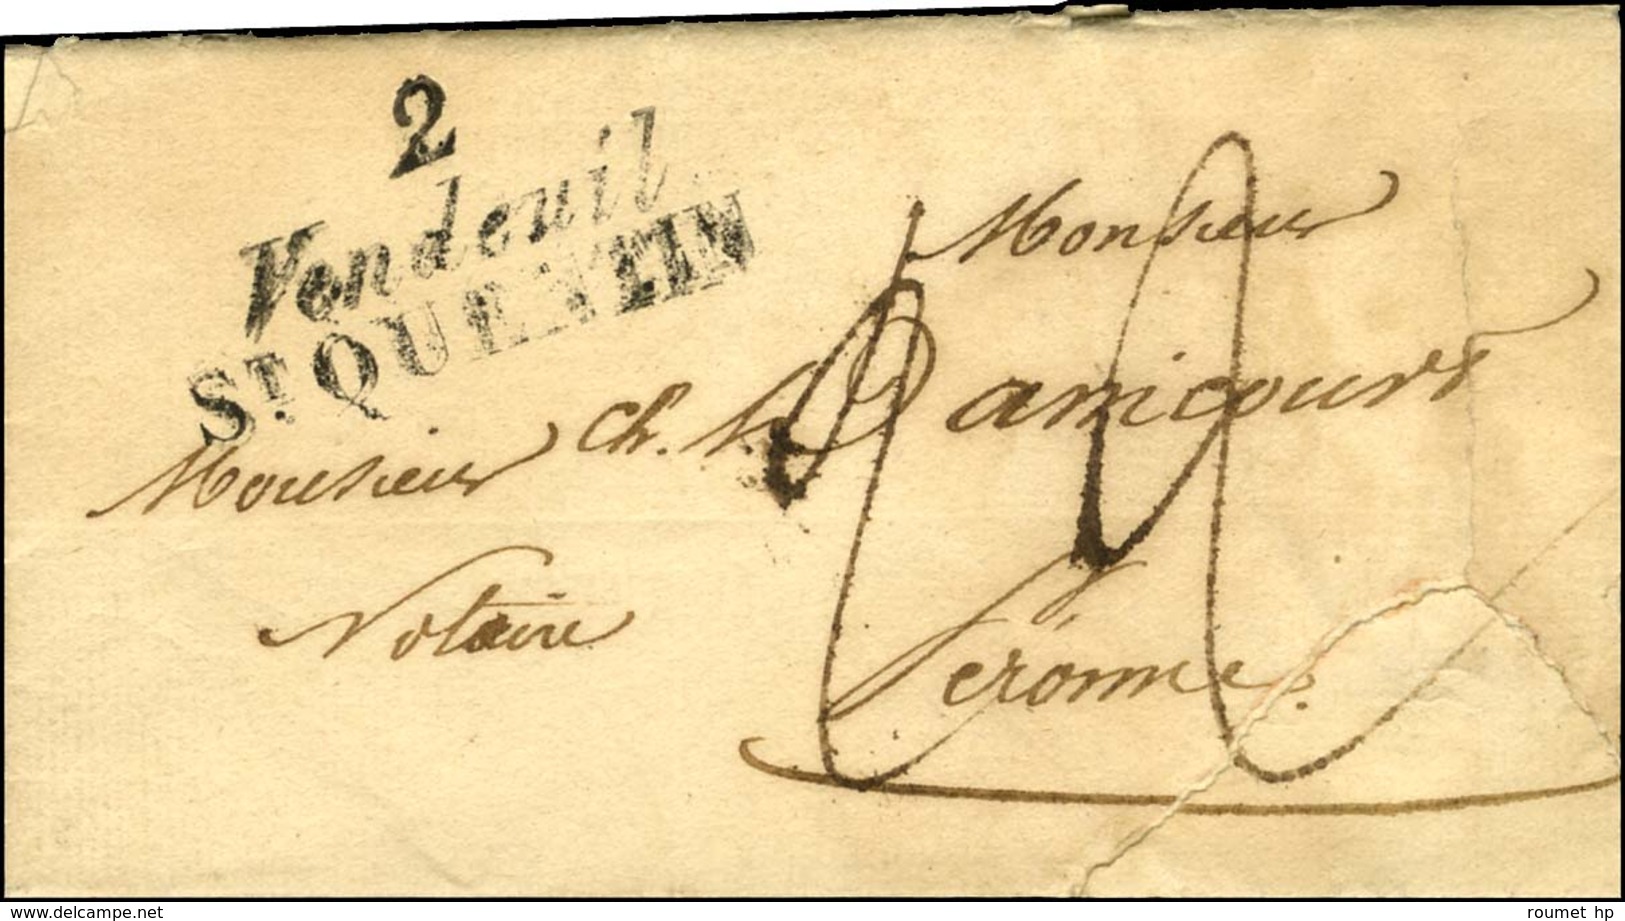 2
Vendeuil
ST. QUENTIN
Monsieur
Monsieur Ch. Danicourt
Notaire
Péronne.
delcampe.net
roumet_hp